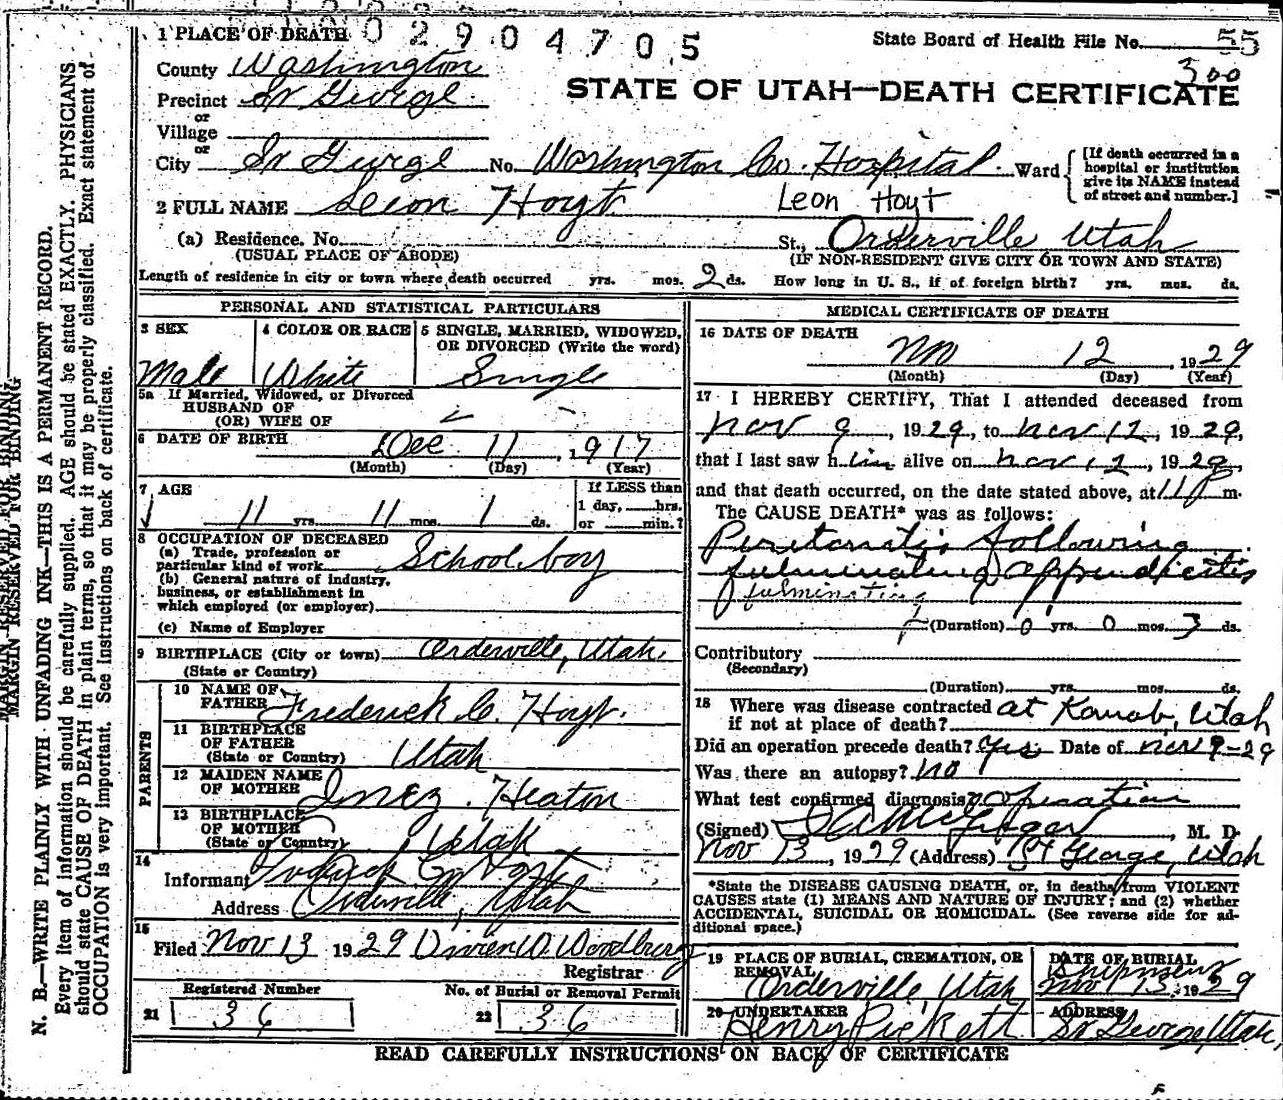 02904705
State Board of Health File No. 55
300
STATE OF UTAH—DEATH CERTIFICATE
1 PLACE OF DEATH
County Washington
Precinct St George
or
Village
or
City St George No. Washington Co. Hospital Ward
[If death occurred in a hospital or institution give its NAME instead of street and number.]
2 FULL NAME Leon Hoyt Leon Hoyt
(a) Residence. No. St., Orderville Utah
(USUAL PLACE OF ABODE) (IF NON-RESIDENT GIVE CITY OR TOWN AND STATE)
Length of residence in city or town where death occurred yrs. mos. 2 ds. How long in U. S., if of foreign birth? yrs. mos. ds.
PERSONAL AND STATISTICAL PARTICULARS
3 SEX
Male
4 COLOR OR RACE
White
5 SINGLE, MARRIED, WIDOWED, OR DIVORCED (Write the word)
Single
5a If Married, Widowed, or Divorced
HUSBAND OF
(OR) WIFE OF
6 DATE OF BIRTH Dec 11, 1917
(Month) (Day) (Year)
7 AGE
11 yrs. 11 mos. 1 ds.
If LESS than
1 day, hrs.
or min.?
8 OCCUPATION OF DECEASED
(a) Trade, profession or
particular kind of work School boy
(b) General nature of industry,
business, or establishment in
which employed (or employer)
(c) Name of Employer
9 BIRTHPLACE (City or town) Orderville, Utah.
(State or Country)
PARENTS
10 NAME OF
FATHER Frederick C. Hoyt.
11 BIRTHPLACE
OF FATHER
(State or Country) Utah
12 MAIDEN NAME
OF MOTHER Inez Heaton
13 BIRTHPLACE
OF MOTHER
(State or Country) Utah
14
Informant Fredrick C Hoyt
Address Orderville, Utah
15
Filed Nov 13 1929 Vivien W. Woodbury
Registrar
Registered Number
21 36
No. of Burial or Removal Permit
22 36
MEDICAL CERTIFICATE OF DEATH
16 DATE OF DEATH
Nov 12, 1929
(Month) (Day) (Year)
17 I HEREBY CERTIFY, That I attended deceased from
Nov 9, 1929, to Nov 12, 1929,
that I last saw him alive on Nov 12, 1929,
and that death occurred, on the date stated above, at 11 P m.
The CAUSE DEATH* was as follows:
Peritonitis following
fulminating appendicitis
fulminating
(Duration) 0 yrs. 0 mos. 3 ds.
Contributory
(Secondary)
(Duration) yrs. mos. ds.
18 Where was disease contracted
if not at place of death? at Kanab, Utah
Did an operation precede death? Yes Date of Nov 9-29
Was there an autopsy? No
What test confirmed diagnosis? Operation
(Signed) McGregor, M. D.
Nov 13, 1929 (Address) St George, Utah
*State the DISEASE CAUSING DEATH, or, in deaths from VIOLENT
CAUSES state (1) MEANS AND NATURE OF INJURY; and (2) whether
ACCIDENTAL, SUICIDAL OR HOMICIDAL. (See reverse side for ad-
ditional space.)
19 PLACE OF BURIAL, CREMATION, OR
REMOVAL
Orderville, Utah
DATE OF BURIAL
Nov 13, 1929
20 UNDERTAKER
Henry Pickett
ADDRESS
St George, Utah,
READ CAREFULLY INSTRUCTIONS ON BACK OF CERTIFICATE
MARGIN RESERVED FOR BINDING
N. B.—WRITE PLAINLY WITH UNFADING INK—THIS IS A PERMANENT RECORD.
Every item of information should be carefully supplied. AGE should be stated EXACTLY. PHYSICIANS
should state CAUSE OF DEATH in plain terms, so that it may be properly classified. Exact statement of
OCCUPATION is very important. See instructions on back of certificate.